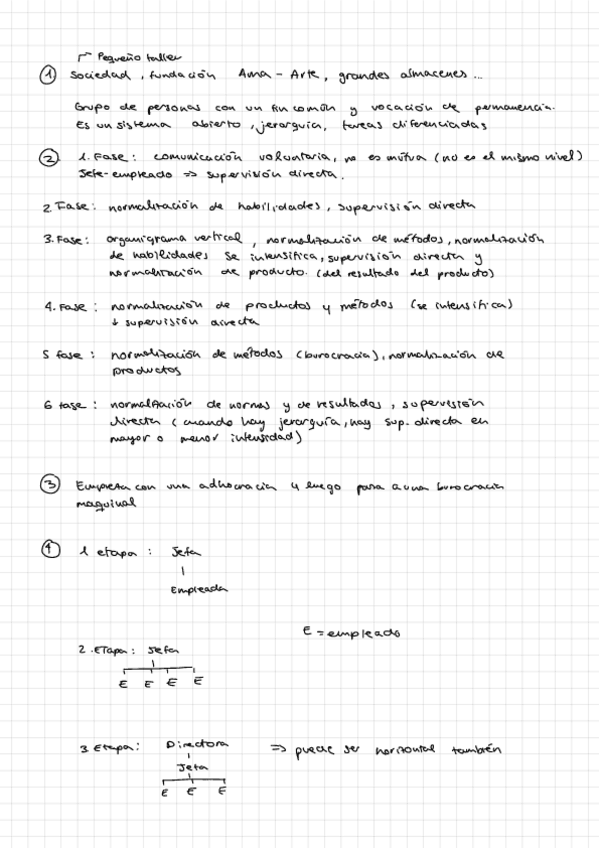 Pequeño taller
① Sociedad, fundación Ama-Arte, grandes almacenes...
Grupo de personas con un fin común y vocación de permanencia.
Es un sistema abierto, jerarquía, tareas diferenciadas
② 1. Fase: comunicación voluntaria, no es mutua (no es el mismo nivel)
Jefe-empleado => supervisión directa.
2. Fase: normalización de habilidades, supervisión directa
3. Fase: organigrama vertical, normalización de métodos, normalización
de habilidades se intensifica, supervisión directa y
normalización de producto. (del resultado del producto)
4. Fase: normalización de productos y métodos (se intensifica)
↓ supervisión directa
5 fase: normalización de métodos (burocracia), normalización de
productos
6 fase: normalización de normas y de resultados, supervisión
directa (cuando hay jerarquía, hay sup. directa en
mayor o menor intensidad)
③ Empresa con una adhocracia y luego para a una burocracia
maquinal
④ 1 etapa: Jefa
Empleada
E = empleado
2. Etapa: Jefa
E E E E
3 Etapa: Directora => puede ser horizontal también
Jefa
E E E